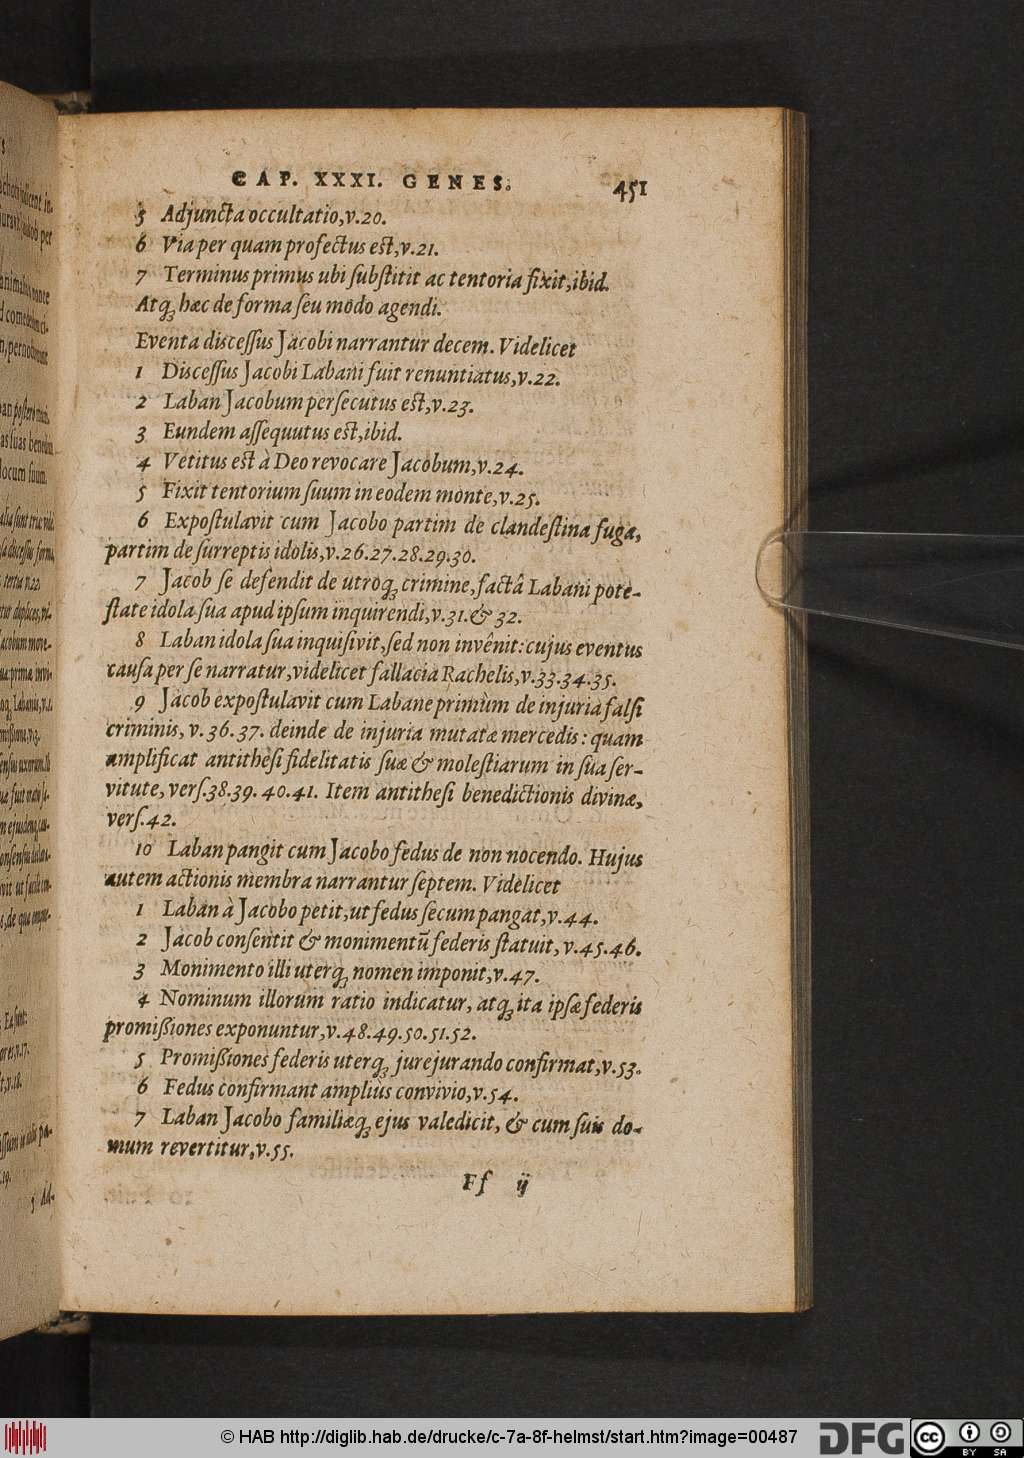 CAP. XXXI. GENES. 451
5 Adjuncta occultatio, v.20.
6 Via per quam profectus est, v.21.
7 Terminus primus ubi substitit ac tentoria fixit, ibid.
Atq; hæc de forma seu modo agendi.
Eventa discessus Jacobi narrantur decem. Videlicet
1 Discessus Jacobi Labani fuit renuntiatus, v.22.
2 Laban Jacobum persecutus est, v.23.
3 Eundem assequutus est, ibid.
4 Vetitus est à Deo revocare Jacobum, v.24.
5 Fixit tentorium suum in eodem monte, v.25.
6 Expostulavit cum Jacobo partim de clandestina fuga,
partim de surreptis idolis, v.26.27.28.29.30.
7 Jacob se defendit de utroq; crimine, factâ Labani pote-
state idola sua apud ipsum inquirendi, v.31. & 32.
8 Laban idola sua inquisivit, sed non invênit: cujus eventus
causa per se narratur, videlicet fallacia Rachelis, v.33.34.35.
9 Jacob expostulavit cum Labane primùm de injuria falsi
criminis, v. 36. 37. deinde de injuria mutatæ mercedis: quam
amplificat antithesi fidelitatis suæ & molestiarum in sua ser-
vitute, vers.38.39. 40.41. Item antithesi benedictionis divinæ,
vers.42.
10 Laban pangit cum Jacobo fedus de non nocendo. Hujus
autem actionis membra narrantur septem. Videlicet
1 Laban à Jacobo petit, ut fedus secum pangat, v.44.
2 Jacob consentit & monimentũ federis statuit, v.45.46.
3 Monimento illi uterq; nomen imponit, v.47.
4 Nominum illorum ratio indicatur, atq; ita ipsæ federis
promißiones exponuntur, v.48.49.50.51.52.
5 Promißiones federis uterq; jurejurando confirmat, v.53.
6 Fedus confirmant amplius convivio, v.54.
7 Laban Jacobo familiæq; ejus valedicit, & cum suis do-
mum revertitur, v.55.
Ff ij
© HAB http://diglib.hab.de/drucke/c-7a-8f-helmst/start.htm?image=00487
DFG
cc BY SA